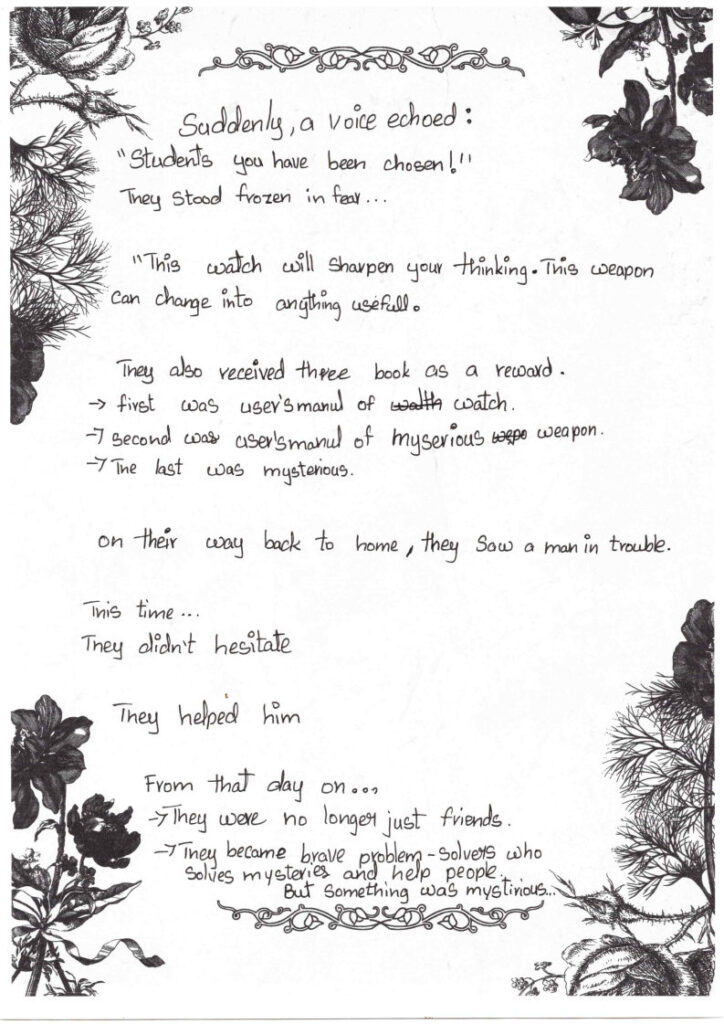 Suddenly, a voice echoed:
"Students you have been chosen!"
They stood frozen in fear...
"This watch will sharpen your thinking. This weapon
can change into angthing usefull.
They also received three book as a reward.
→ first was user'smanul of walth watch.
→ second was user'smanul of myserious wepo weapon.
→ The last was mysterious.
on their way back to home, they saw a man in trouble.
This time...
They didn't hesitate
They helped him
From that day on...
→ They were no longer just friends.
→ They became brave problem-solvers who
solves mysteries and help people.
But something was mystirious...